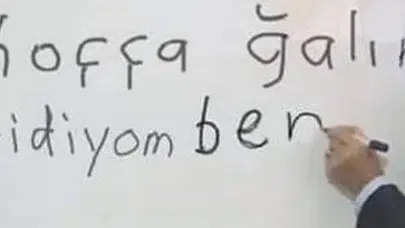 hoçça ğalın
idiyom ben